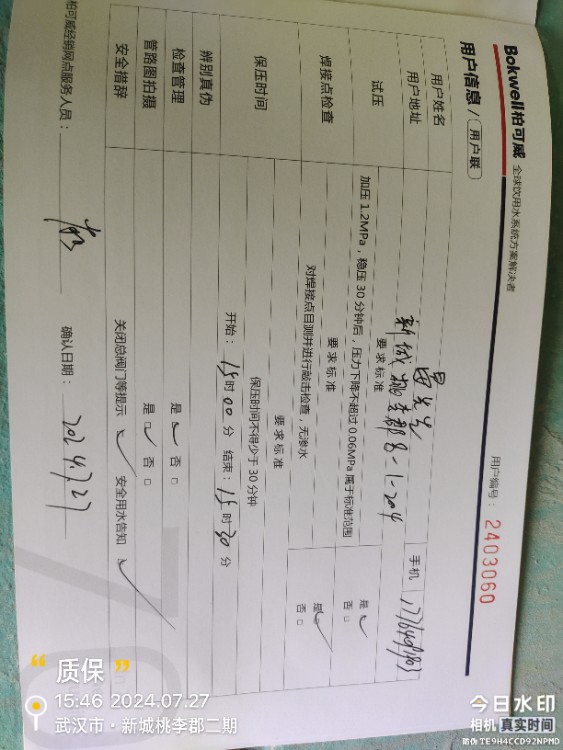 Bokwell柏可威 全球饮用水系统方案解决者
用户编号： 2403060
用户信息 / 用户联
用户姓名 先生 手机
用户地址 新城桃李郡8-1-204
试压 要求标准
加压 1.2MPa，稳压 30 分钟后，压力下降不超过 0.06MPa 属于标准范围 是 ✓ 否 □
焊接点检查 要求标准
对焊接点目测并进行敲击检查，无渗水 是 ✓ 否 □
保压时间 要求标准
保压时间不得少于 30 分钟
开始： 15 时 00 分 结束： 15 时 30 分
辨别真伪
检查管理 是 ✓ 否 □
管路图拍摄 是 ✓ 否 □
安全措辞 关闭总阀门等提示 ✓ 安全用水告知 ✓
柏可威经销网点服务人员：
确认日期： 2024.7.27
“ 质保 ”
15:46 2024.07.27
武汉市·新城桃李郡二期
今日水印
相机 真实时间
防伪 TE9H4CCD92NPMD